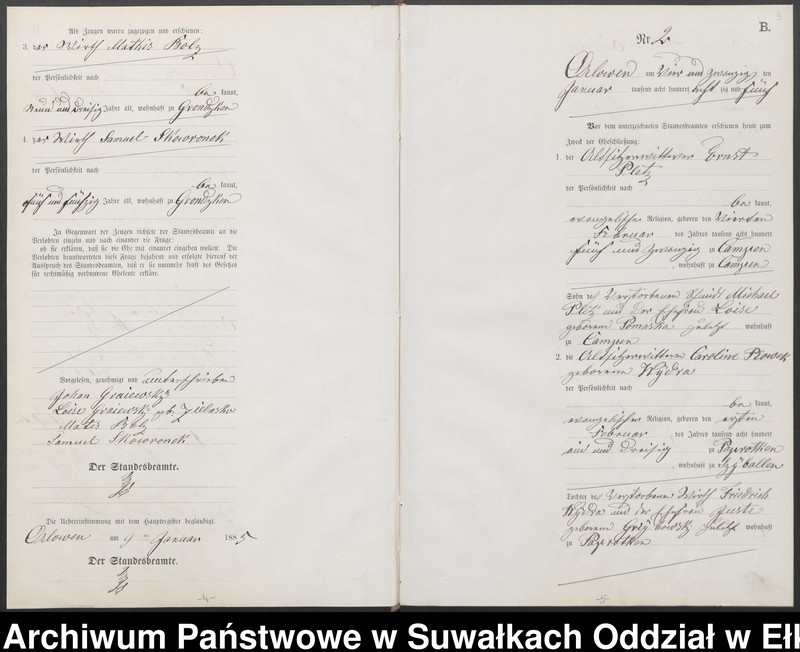 Als Zeugen waren zugezogen und erschienen:
3. der Wirth Mathis Bolz
der Persönlichkeit nach
be kannt,
Neun und dreißig Jahre alt, wohnhaft zu Grondzken
4. der Wirth Samuel Skowronek
der Persönlichkeit nach
be kannt,
fünf und fünfzig Jahre alt, wohnhaft zu Grondzken
In Gegenwart der Zeugen richtete der Standesbeamte an die
Verlobten einzeln und nach einander die Frage:
ob sie erklären, daß sie die Ehe mit einander eingehen wollen. Die
Verlobten beantworteten diese Frage bejahend und erfolgte hierauf der
Ausspruch des Standesbeamten, daß er sie nunmehr kraft des Gesetzes
für rechtmäßig verbundene Eheleute erkläre.
Vorgelesen, genehmigt und unterschrieben
Johan Graiewski
Loise Graiewski geb.
Matis Bolz
Samuel Skowronek
Der Standesbeamte.
Die Uebereinstimmung mit dem Hauptregister beglaubigt.
Orlowen am 9ten Januar 1885
Der Standesbeamte.
-4-
B.
3
Nr. 2
Orlowen am Vier und zwanzig ten
Januar tausend acht hundert acht zig und fünf
Vor dem unterzeichneten Standesbeamten erschienen heute zum
Zweck der Eheschließung:
1. der Altsitzerwittwer Ernst
Pletz
der Persönlichkeit nach
be kannt,
evangelischer Religion, geboren den Vierten
Februar des Jahres tausend acht hundert
fünf und zwanzig zu Campen
, wohnhaft zu Campen
Sohn des Verstorbenen Schmidt Michael
Pletz und der Ehefrau Loise
geborene Pomaska zuletzt wohnhaft
zu Campen
2. die Altsitzerwittwe Caroline
geborene Wydra
der Persönlichkeit nach
be kannt,
evangelischer Religion, geboren den ersten
Februar des Jahres tausend acht hundert
ein und dreißig zu Pazerothken
, wohnhaft zu
Tochter des Verstorbenen Wirth Friedrich
Wydra und der Ehefrau Juste
geborene zuletzt wohnhaft
zu Pazerothken
-5-
Archiwum Państwowe w Suwałkach Oddział w Ełk